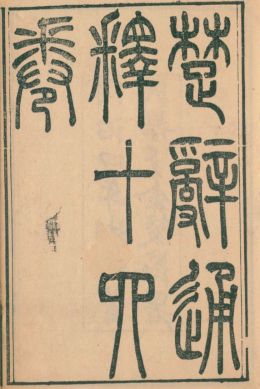 楚辭通
釋十四
卷